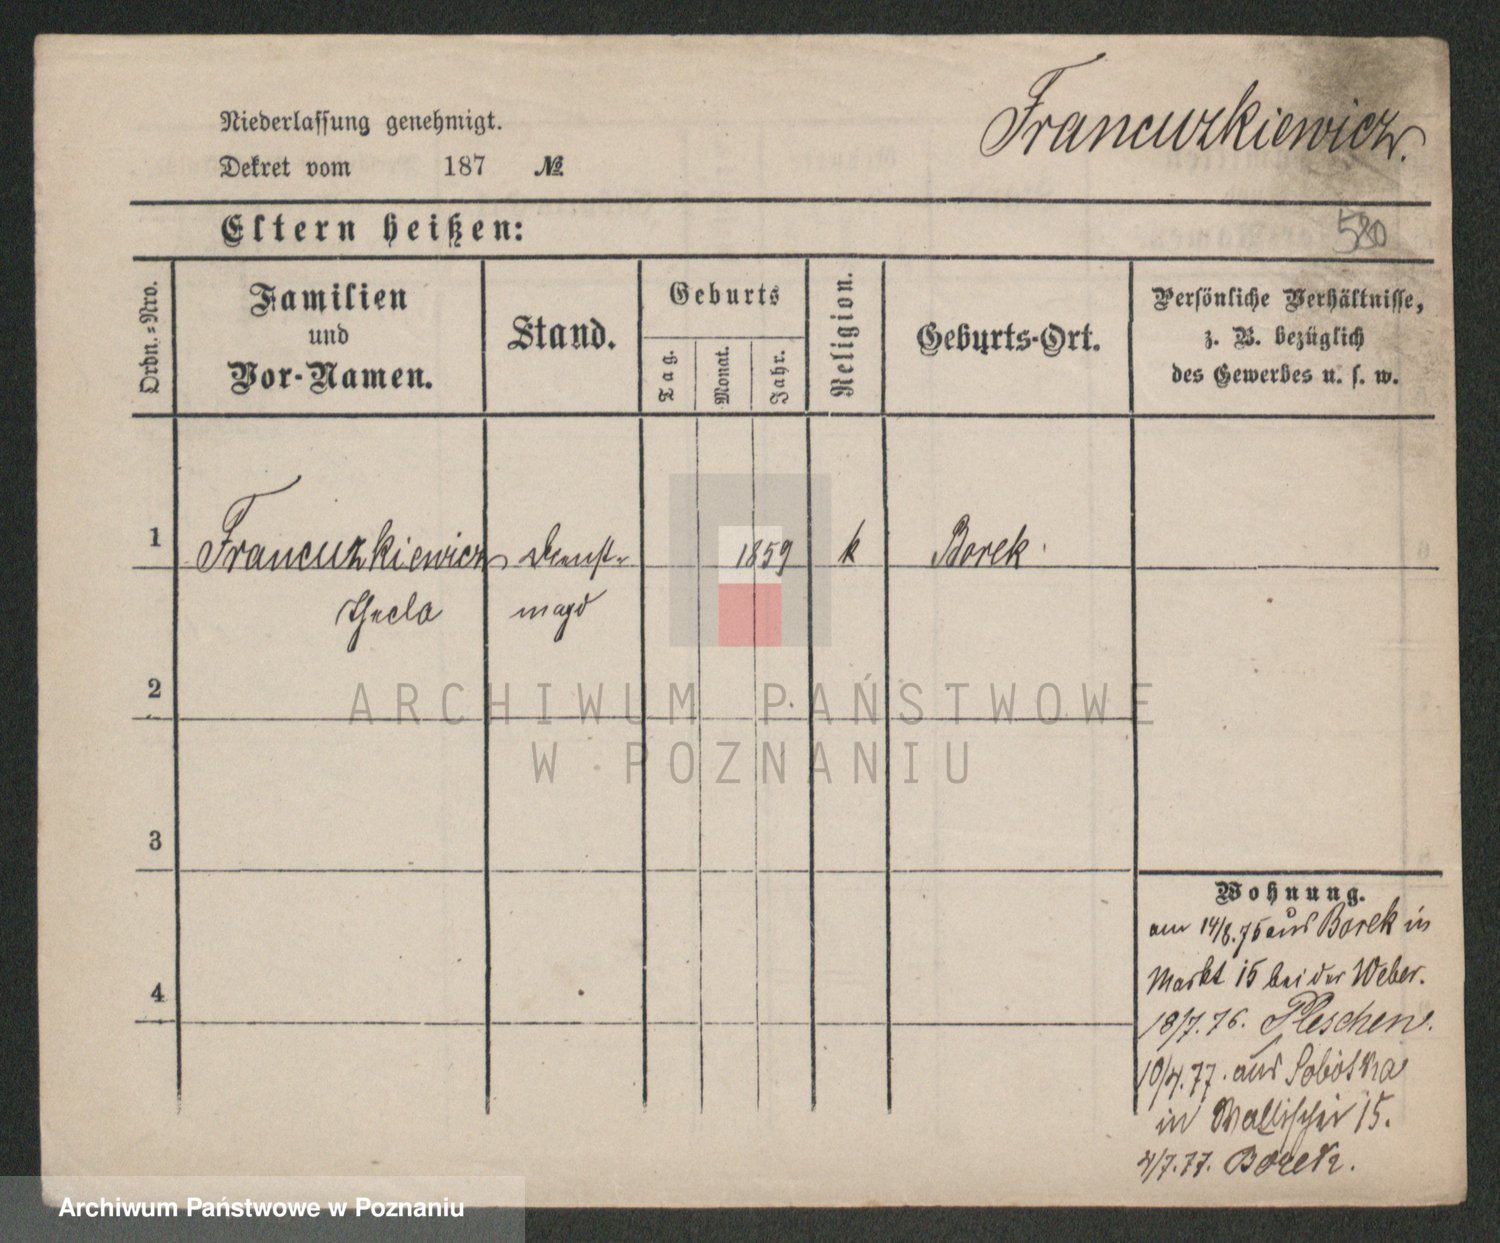 Francuzkiewicz.
Niederlassung genehmigt.
Dekret vom 187 №
Eltern heißen:
580
Ordn.-Nro.
Familien
und
Vor-Namen.
Stand.
Geburts
Tag.
Monat.
Jahr.
Religion.
Geburts-Ort.
Persönliche Verhältnisse,
z. B. bezüglich
des Gewerbes u. s. w.
1 Francuzkiewicz Dienst- 1859 k Borek
Thecla magd
2
3
4
Wohnung.
am 14/8.75 aus Borek in
Markt 15 bei der Weber.
18/7.76. Pleschen.
10/4.77. aus Sobotka
in Wallischei 15.
4/7.77. Borek.
ARCHIWUM PAŃSTWOWE
W POZNANIU
Archiwum Państwowe w Poznaniu